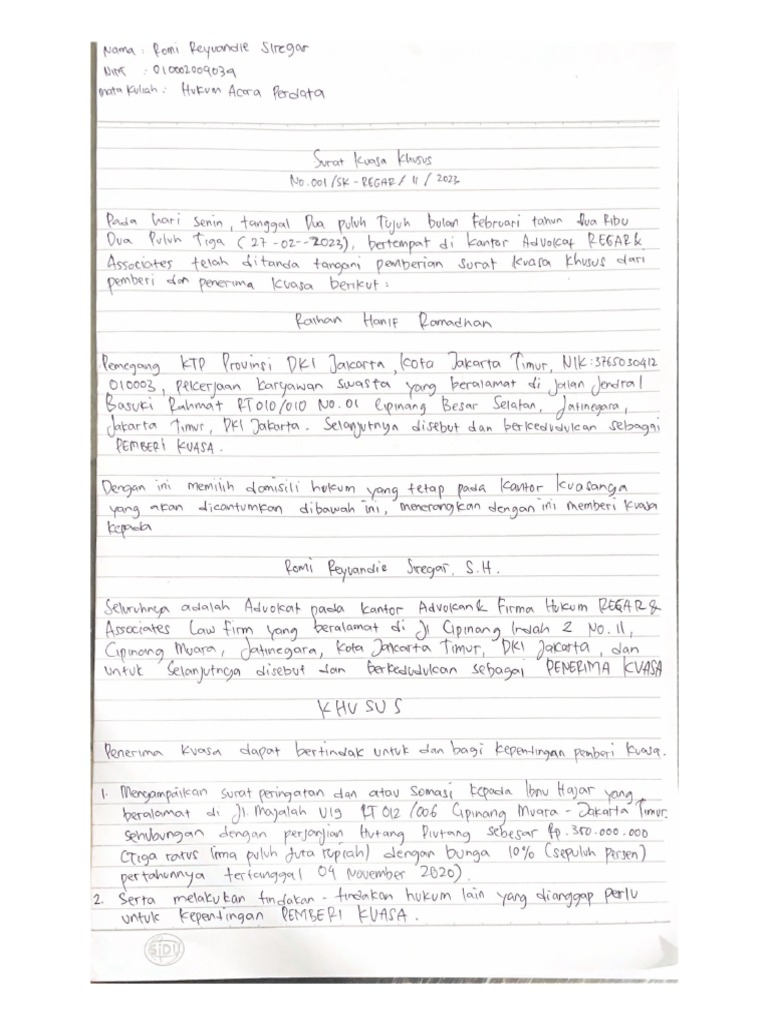 Nama : Romi Reyvandie Siregar
NIM : 010002009039
Mata Kuliah : Hukum Acara Perdata
Surat Kuasa Khusus
No.001/SK-REGAR/11/2023
Pada hari senin, tanggal Dua puluh Tujuh bulan Februari tahun dua Ribu
Dua Puluh Tiga (27-02--2023), bertempat di kantor Advokat REGAR&
Associates telah ditanda tangani pemberian surat kuasa khusus dari
pemberi dan penerima kuasa berikut :
Raihan Hanif Ramadhan
Pemegang KTP Provinsi DKI Jakarta, Kota Jakarta Timur, NIK:3765030412
010003, pekerjaan karyawan swasta yang beralamat di Jalan Jendral
Basuki Rahmat RT010/010 No.01 Cipinang Besar Selatan, Jatinegara,
Jakarta Timur, DKI Jakarta. Selanjutnya disebut dan berkedudukan sebagai
PEMBERI KUASA.
Dengan ini memilih domisili hukum yang tetap pada kantor kuasanya
yang akan dicantumkan dibawah ini, menerangkan dengan ini memberi kuasa
kepada
Romi Reyvandie Siregar, S.H.
Seluruhnya adalah Advokat pada kantor Advokan& Firma Hukum REGAR&
Associates Law firm yang beralamat di Jl Cipinang Indah 2 No.11,
Cipinang Muara, Jatinegara, Kota Jakarta Timur, DKI Jakarta, dan
untuk Selanjutnya disebut dan berkedudukan sebagai PENERIMA KUASA
KHUSUS
Penerima kuasa dapat bertindak untuk dan bagi kepentingan pemberi kuasa.
1. Menyampaikan surat peringatan dan atau somasi kepada Ibnu Hajar yang
beralamat di Jl. Majalah U19 RT012/006 Cipinang Muara - Jakarta Timur.
sehubungan dengan perjanjian Hutang Piutang sebesar Rp.350.000.000
(Tiga ratus lima puluh Juta rupiah) dengan bunga 10% (sepuluh persen)
pertahunnya tertanggal 04 November 2020).
2. Serta melakukan tindakan-tindakan hukum lain yang dianggap perlu
untuk kepentingan PEMBERI KUASA.
SIDU